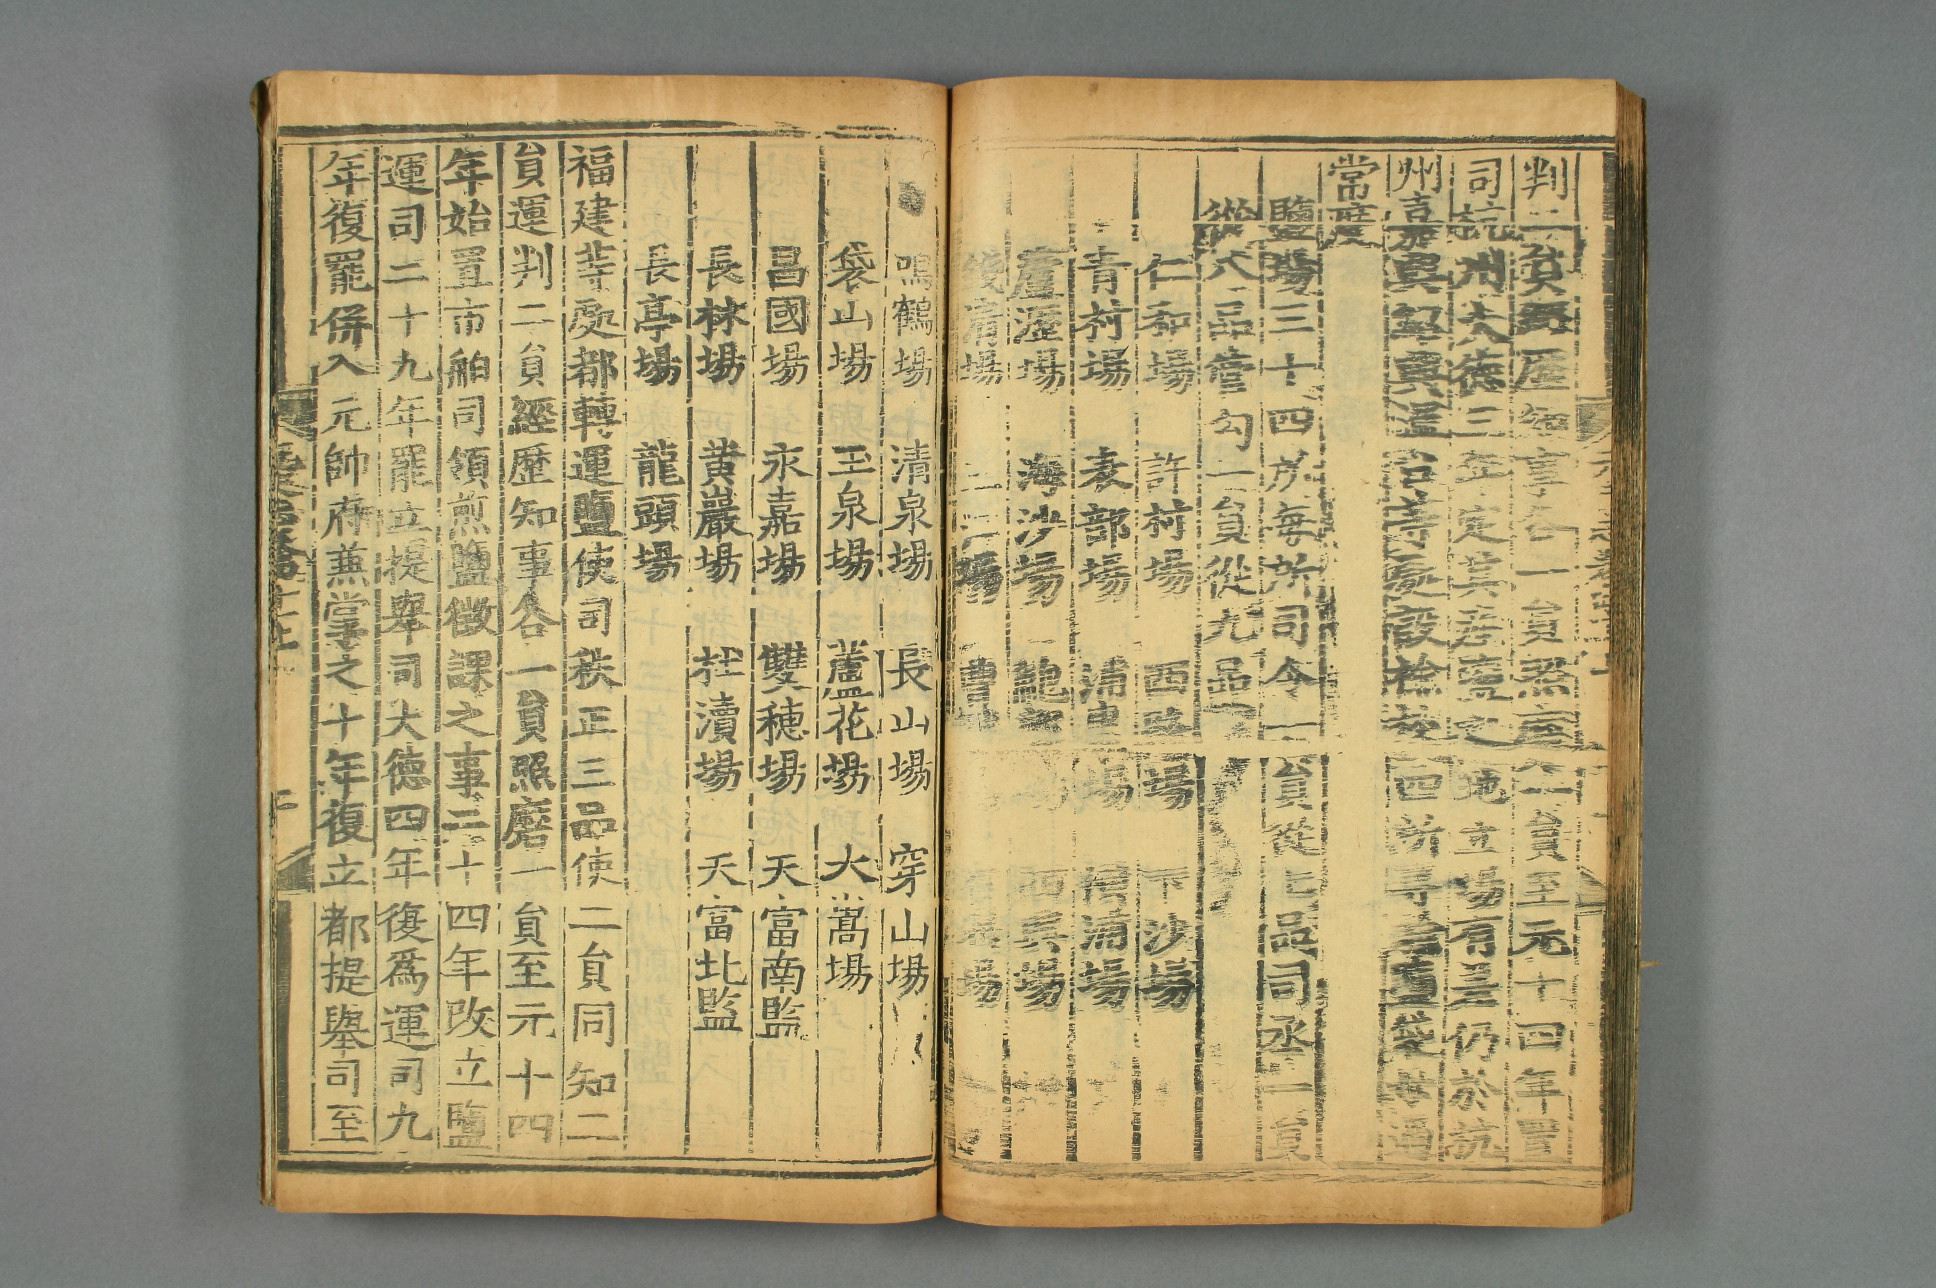 判二員經歷知事各一員照磨一員至元十四年置
司杭州大德三年定其産鹽之地立場有差仍於杭
州嘉興紹興溫台等處設檢校四所專驗鹽袋毋過
常度
鹽場三十四所每所司令一員從七品司丞一員
從八品管勾一員從九品
仁和場 許村場 西路場 下沙場
青村場 袁部場 浦東場 橫浦場
蘆瀝場 海沙場 鮑郎場 西興場
錢清場 三江場 曹娥場
鳴鶴場 清泉場 長山場 穿山場
袋山場 玉泉場 蘆花場 大嵩場
昌國場 永嘉場 雙穗場 天富南監
長林場 黃巖場 杜瀆場 天富北監
長亭場 龍頭場
福建等處都轉運鹽使司秩正三品使二員同知二
員運判二員經歷知事各一員照磨一員至元十四
年始置市舶司領煎鹽徵課之事二十四年改立鹽
運司二十九年罷立提舉司大德四年復爲運司九
年復罷併入元帥府兼掌之十年復立都提舉司至